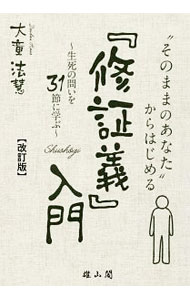 "そのままのあなた"
からはじめる
『修証義』入門
Shushogi
～生死の問いを
31節に学ぶ～
大童法慧
【改訂版】
雄山閣